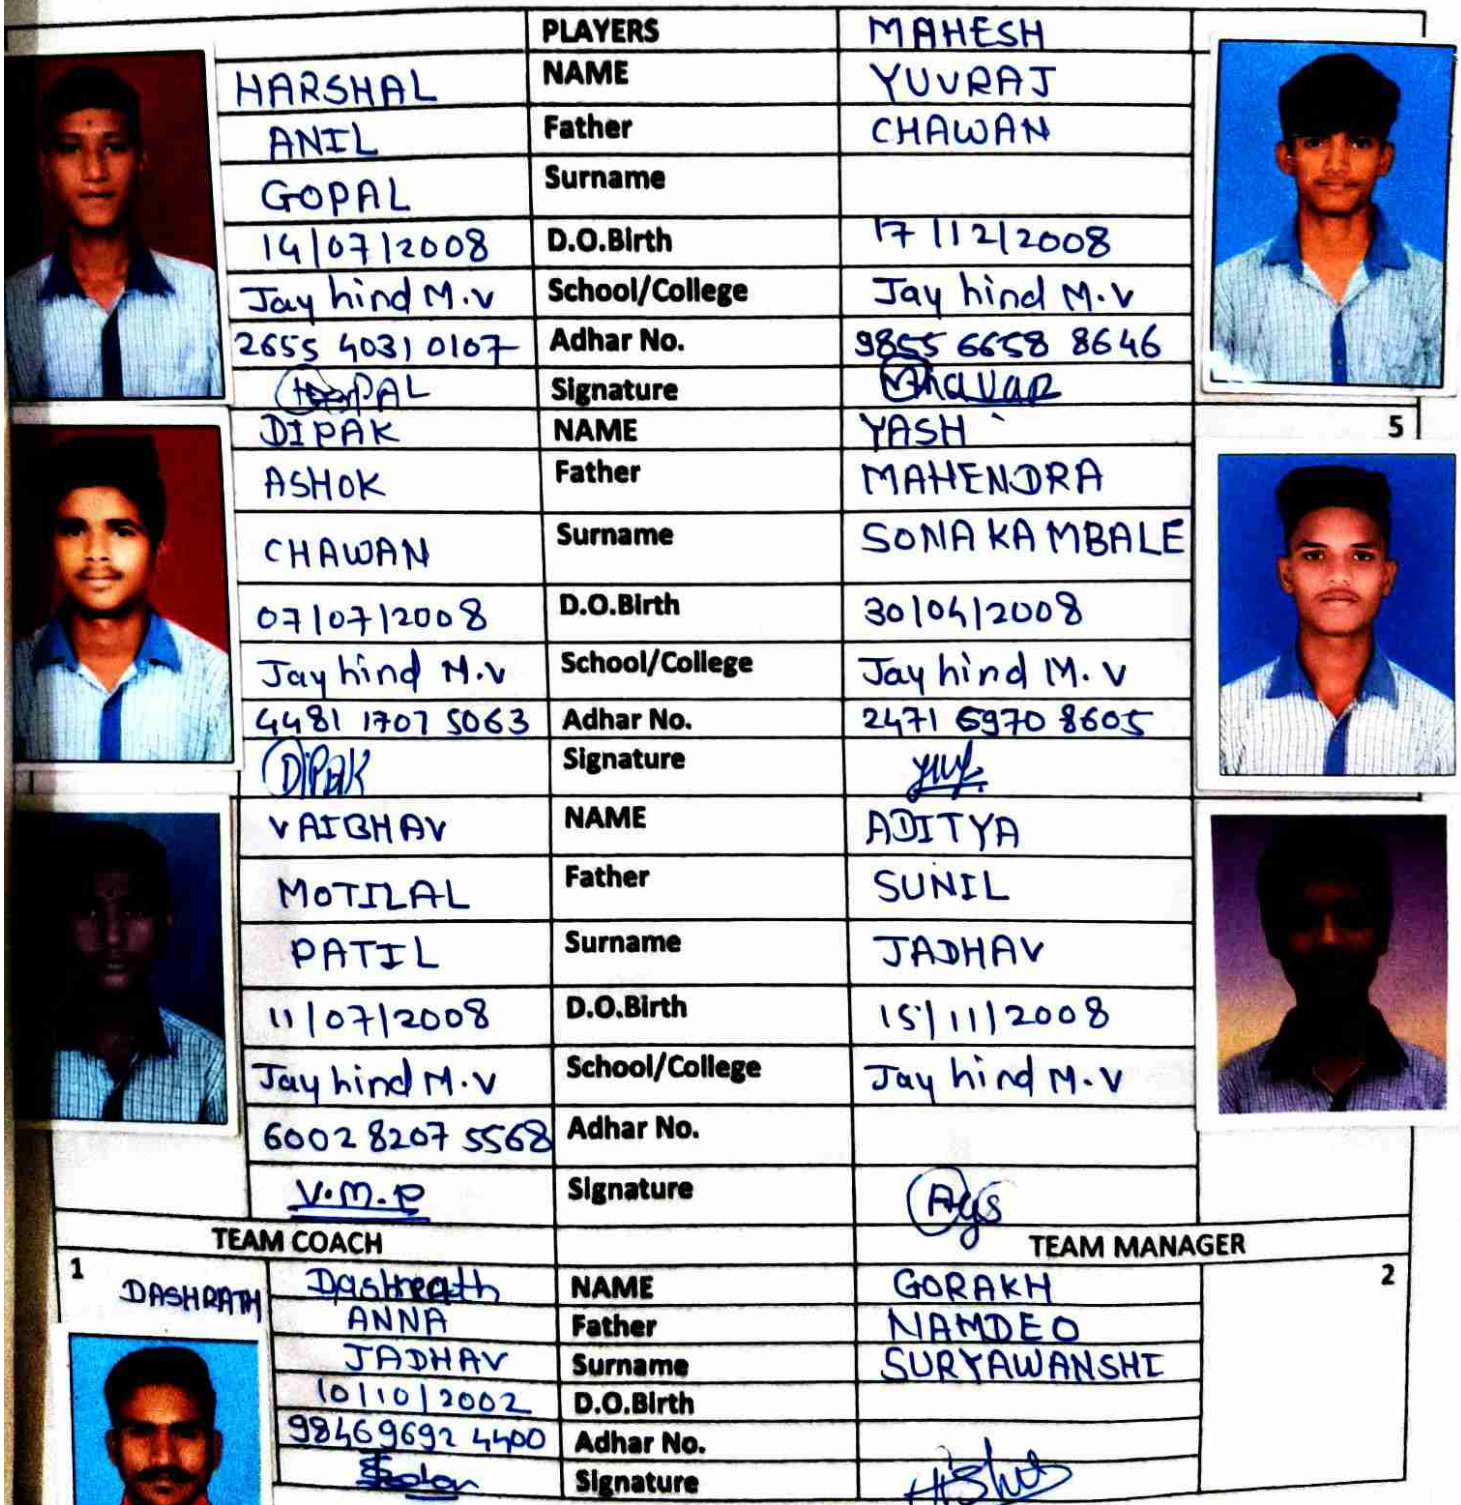 PLAYERS MAHESH
HARSHAL NAME YUVRAJ
ANIL Father CHAWAN
GOPAL Surname
14/07/2008 D.O.Birth 17/12/2008
Jay hind M.V School/College Jay hind M.V
2655 4031 0107 Adhar No. 9855 6658 8646
Signature
DIPAK NAME YASH 5
ASHOK Father MAHENDRA
CHAWAN Surname SONAKAMBALE
07/07/2008 D.O.Birth 30/04/2008
Jay hind M.V School/College Jay hind M.V
4481 1707 5063 Adhar No. 2471 6970 8605
DiPAK Signature
VAIBHAV NAME ADITYA
MOTILAL Father SUNIL
PATIL Surname JADHAV
11/07/2008 D.O.Birth 15/11/2008
Jay hind M.V School/College Jay hind M.V
6002 8207 5568 Adhar No.
V.M.P Signature
TEAM COACH TEAM MANAGER
1 DASHRATH Dashrath NAME GORAKH 2
ANNA Father NAMDEO
JADHAV Surname SURYAWANSHI
10/10/2002 D.O.Birth
98469692 4400 Adhar No.
Signature